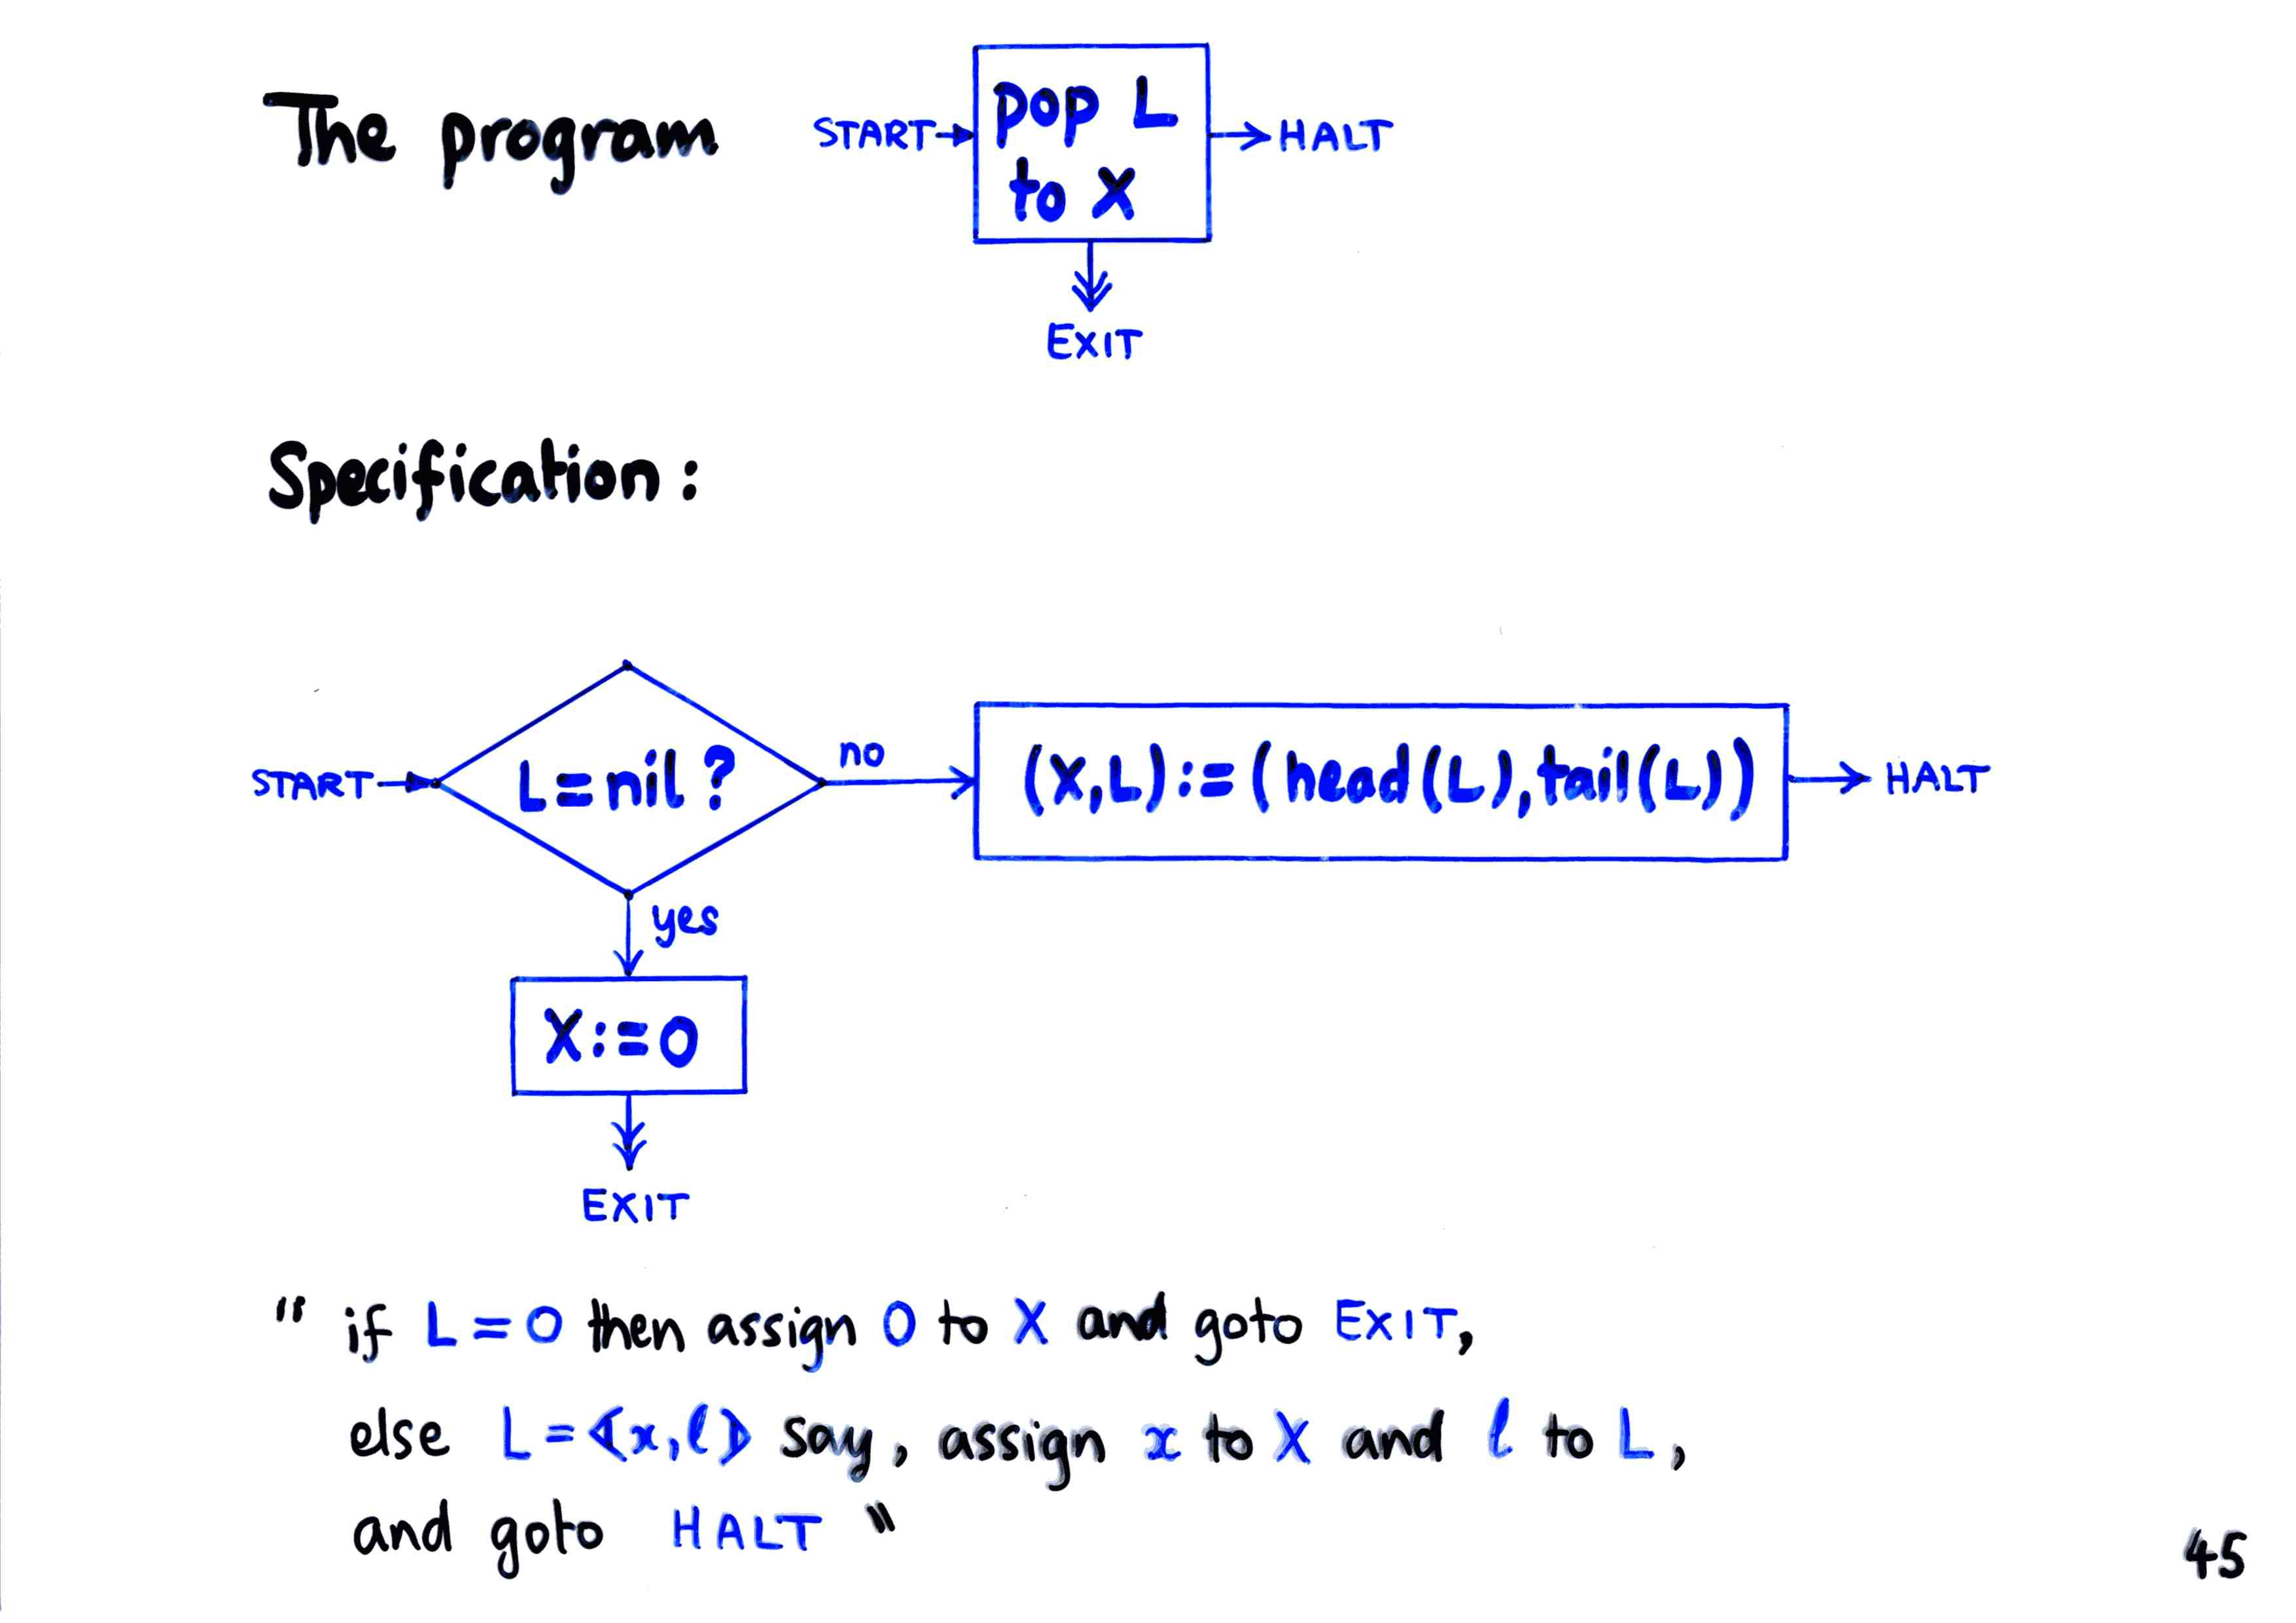 The program
START
pop L
to X
HALT
EXIT
Specification:
START
L=nil?
no
(X,L):=(head(L),tail(L))
HALT
yes
X:=0
EXIT
" if L=0 then assign 0 to X and goto EXIT,
else L=⟪x,l⟫ say, assign x to X and l to L,
and goto HALT "
45